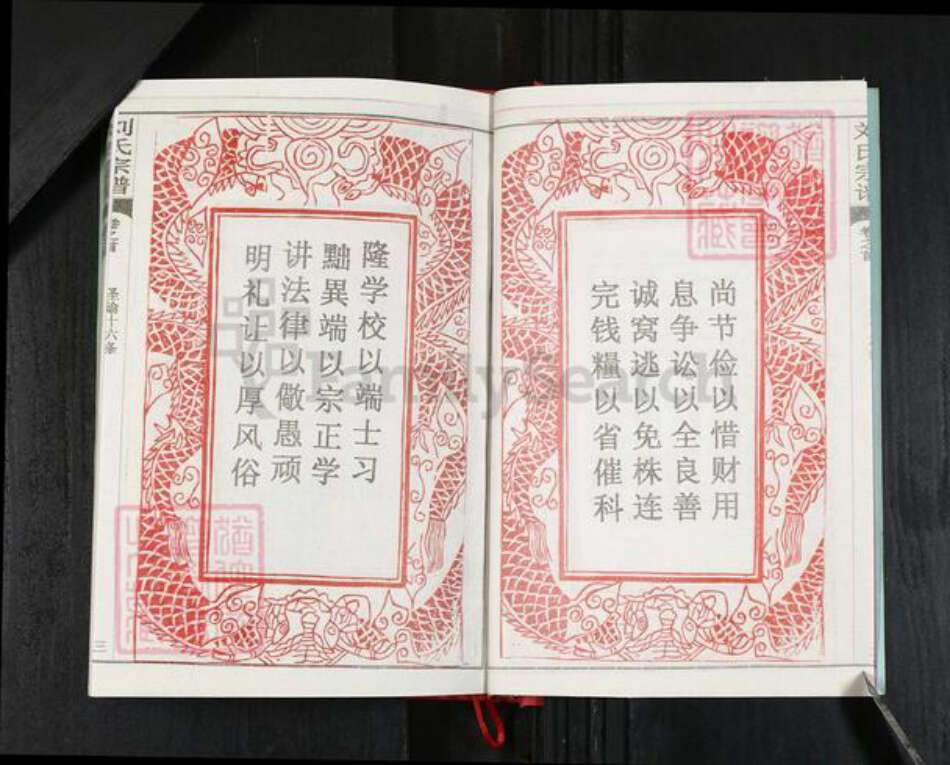 刘氏宗谱
卷之首
尚节俭以惜财用
息争讼以全良善
诚窝逃以免株连
完钱糧以省催科
隆学校以端士习
黜異端以宗正学
讲法律以儆愚顽
明礼让以厚风俗
刘氏宗谱
卷之首
圣谕十六条
三
FamilySearch